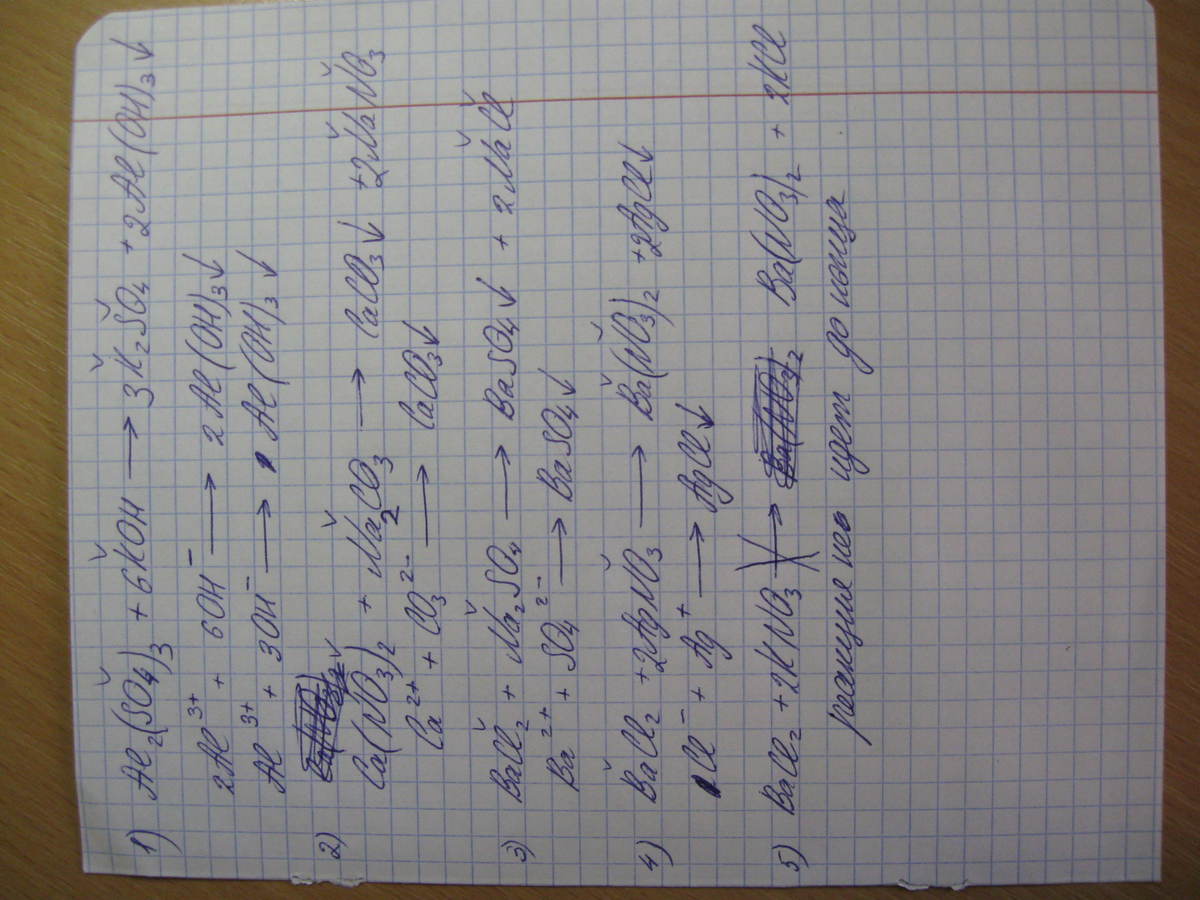 1) Al₂(SO₄)₃ + 6KOH → 3K₂SO₄ + 2Al(OH)₃↓
2Al³⁺ + 6OH⁻ → 2Al(OH)₃↓
Al³⁺ + 3OH⁻ → Al(OH)₃↓
2) Ca(NO₃)₂ + Na₂CO₃ → CaCO₃↓ + 2NaNO₃
Ca²⁺ + CO₃²⁻ → CaCO₃↓
3) BaCl₂ + Na₂SO₄ → BaSO₄↓ + 2NaCl
Ba²⁺ + SO₄²⁻ → BaSO₄↓
4) BaCl₂ + 2AgNO₃ → Ba(NO₃)₂ + 2AgCl↓
Cl⁻ + Ag⁺ → AgCl↓
5) BaCl₂ + 2KNO₃ → Ba(NO₃)₂ + 2KCl
реакция не идет до конца